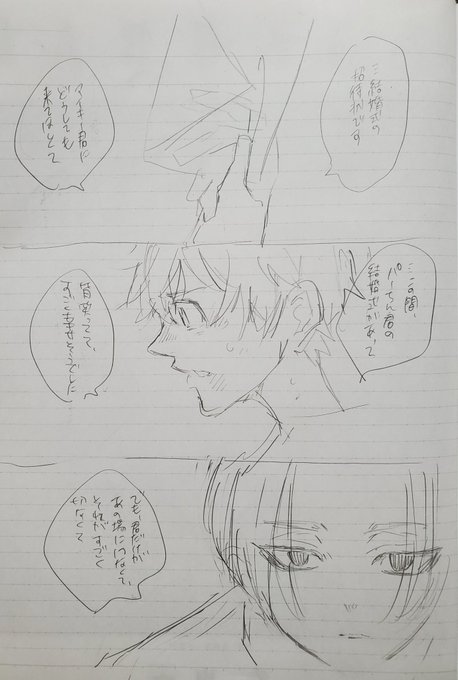 …結婚式の
招待状です
マイキー君に
どうしても
来てほしくて
…この間、
パーちん君の
結婚式があって
皆笑ってて、
すごく幸せそうでした
でも…君だけが
あの場にいなくて、
それがすごく
切なくて